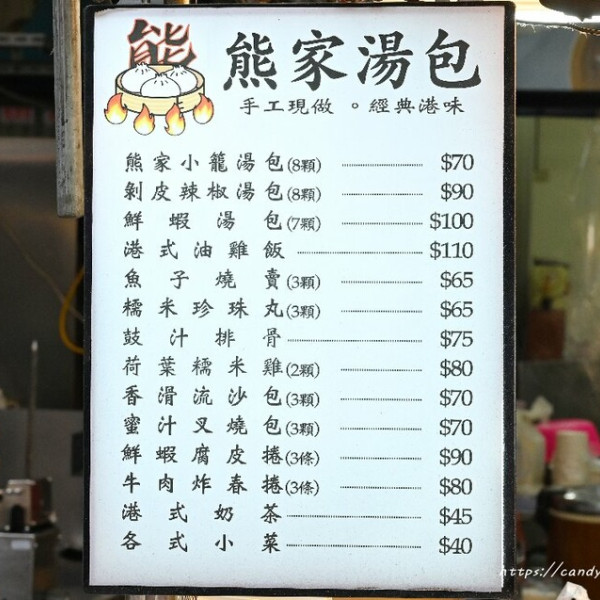 熊
熊家湯包
手工現做 。經典港味
熊家小籠湯包(8顆) $70
剝皮辣椒湯包(8顆) $90
鮮蝦湯包(7顆) $100
港式油雞飯 $110
魚子燒賣(3顆) $65
糯米珍珠丸(3顆) $65
豉汁排骨 $75
荷葉糯米雞(2顆) $80
香滑流沙包(3顆) $70
蜜汁叉燒包(3顆) $70
鮮蝦腐皮捲(3條) $90
牛肉炸春捲(3條) $80
港式奶茶 $45
各式小菜 $40
https://candy